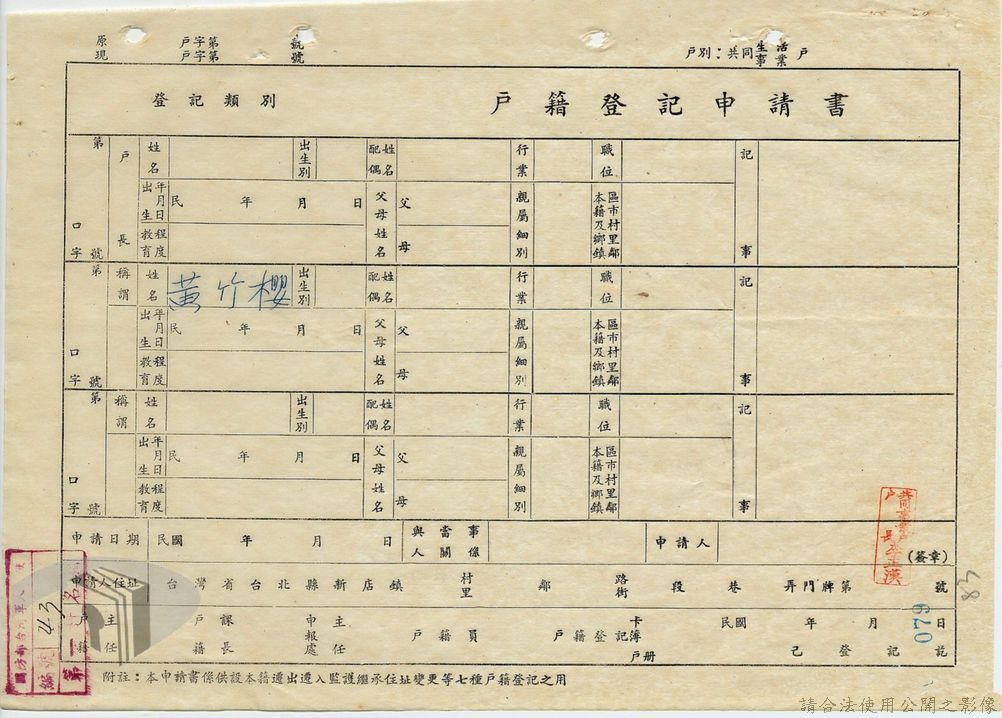 原 戶字第 號
現 戶字第 號
戶別：共同生活事業戶
登記類別 戶籍登記申請書
第 口 字 號 戶長 姓名 出生別 配偶姓名 行業 職位 記事
出生年月日 民 年 月 日 父母姓名 父 母 親屬細別 本籍 區市村里鄰及鄉鎮
教育程度
第 口 字 號 稱謂 姓名 黃竹櫻 出生別 配偶姓名 行業 職位 記事
出生年月日 民 年 月 日 父母姓名 父 母 親屬細別 本籍 區市村里鄰及鄉鎮
教育程度
第 口 字 號 稱謂 姓名 出生別 配偶姓名 行業 職位 記事
出生年月日 民 年 月 日 父母姓名 父 母 親屬細別 本籍 區市村里鄰及鄉鎮
教育程度
申請日期 民國 年 月 日 與當事人關係 申請人 (簽章)
共同事業戶
戶長
申請人住址 台灣省台北縣新店鎮 村里 鄰 路街 段 巷 弄門牌第 號
戶籍主任 戶籍課長 申報處主任 戶籍員 戶籍登記卡簿戶冊 民國 年 月 日 已登記訖
附註：本申請書係供設本籍遷出遷入監護繼承住址變更等七種戶籍登記之用
編號 43
第
079
83
請合法使用公開之影像